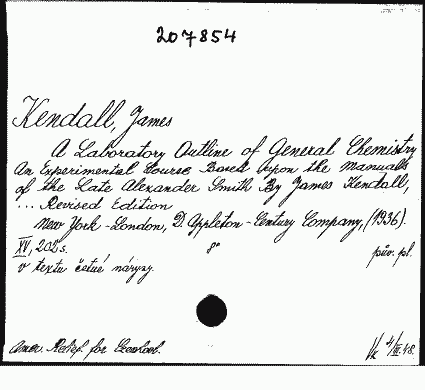 207854
Kendall, James
A Laboratory Outline of General Chemistry
An Experimental Course Based upon the Manuals
of the Late Alexander Smith By James Kendall,
... Revised Edition
New York - London, D. Appleton - Century Company, (1936).
XV, 202 s. 8° pův. pl.
v textu četné nárysy.
Amer. Relief. for Czechosl. Vk 4/III.48.